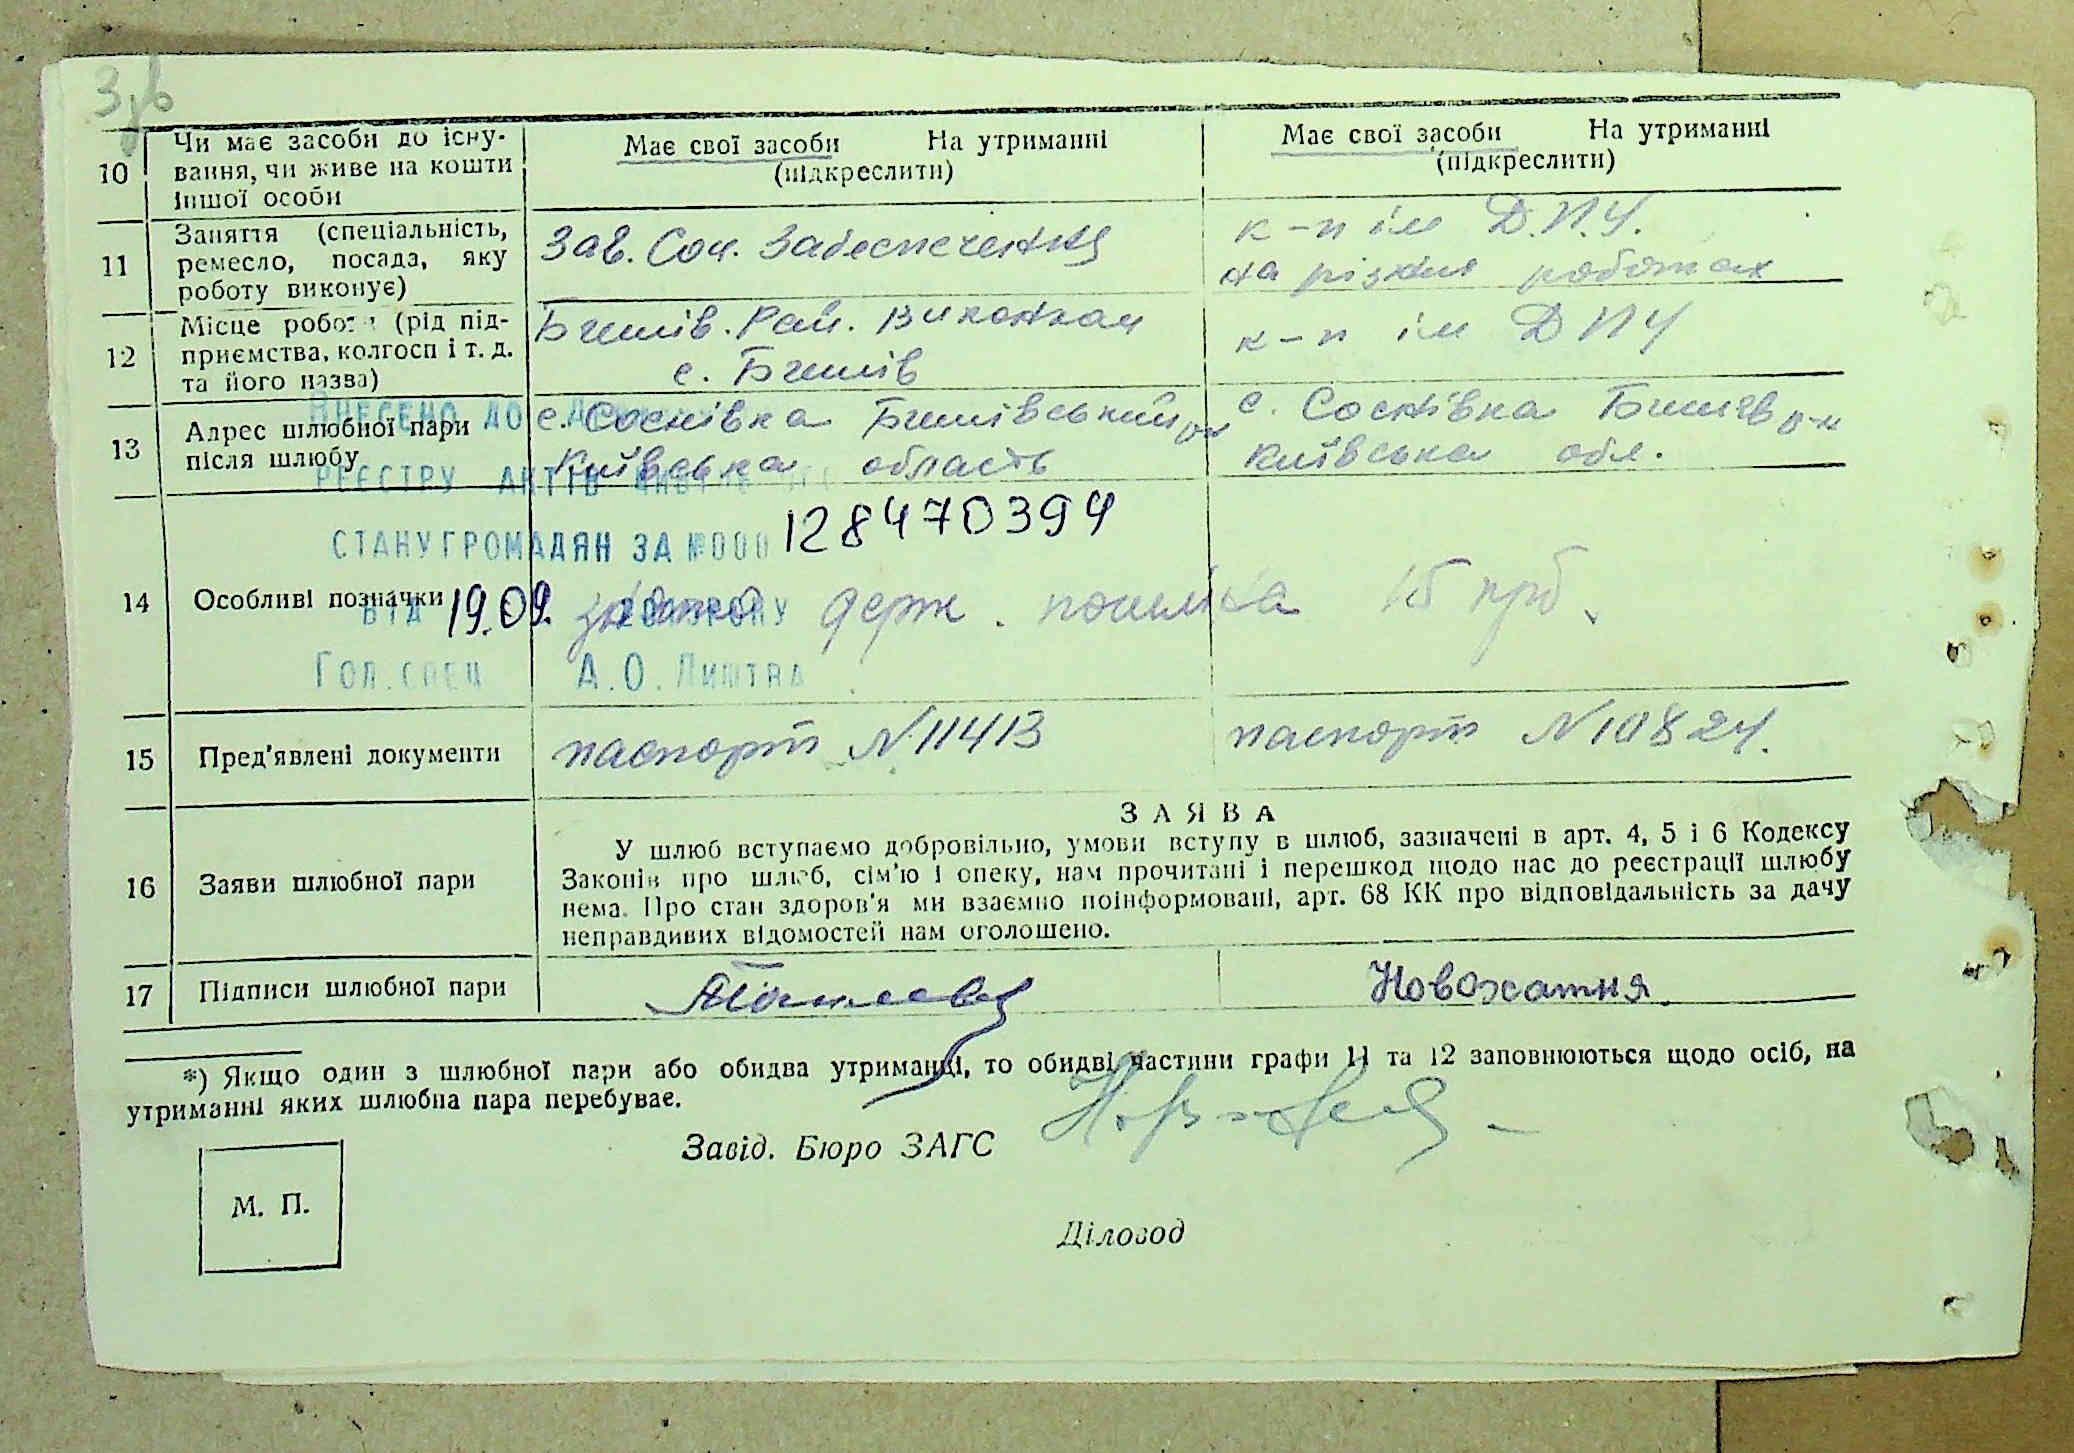 10 Чи має засоби до існу-
вання, чи живе на кошти
іншої особи
Має свої засоби На утриманні
(підкреслити)
Має свої засоби На утриманні
(підкреслити)
11 Заняття (спеціальність,
ремесло, посада, яку
роботу виконує)
Зав. Соц. Забеспечення
к-п ім Д.П.У.
на різних роботах
12 Місце роботи (рід під-
приємства, колгосп і т. д.
та його назва)
Бишів. Рай. Виконком
с. Бишів
к-п ім ДПУ
13 Адрес шлюбної пари
після шлюбу
с. Соснівка Бишівський р-н
Київська область
с. Соснівка Бишів р-н
Київська обл.
ВНЕСЕНО ДО
РЕЄСТРУ АКТІВ
СТАНУ ГРОМАДЯН ЗА №000 128470394
14 Особливі позначки
ВІД 19.09. РОКУ
держ. 15 крб.
Гол. спец А.О.
15 Пред'явлені документи
паспорт N 11413
паспорт N 10824.
16 Заяви шлюбної пари
ЗАЯВА
У шлюб вступаємо добровільно, умови вступу в шлюб, зазначені в арт. 4, 5 і 6 Кодексу
Законів про шлюб, сім'ю і опеку, нам прочитані і перешкод щодо нас до реєстрації шлюбу
нема. Про стан здоров'я ми взаємно поінформовані, арт. 68 КК про відповідальність за дачу
неправдивих відомостей нам оголошено.
17 Підписи шлюбної пари
Новохатня
*) Якщо один з шлюбної пари або обидва утриманці, то обидві частини графи 11 та 12 заповнюються щодо осіб, на
утриманні яких шлюбна пара перебуває.
Завід. Бюро ЗАГС
М. П.
Діловод